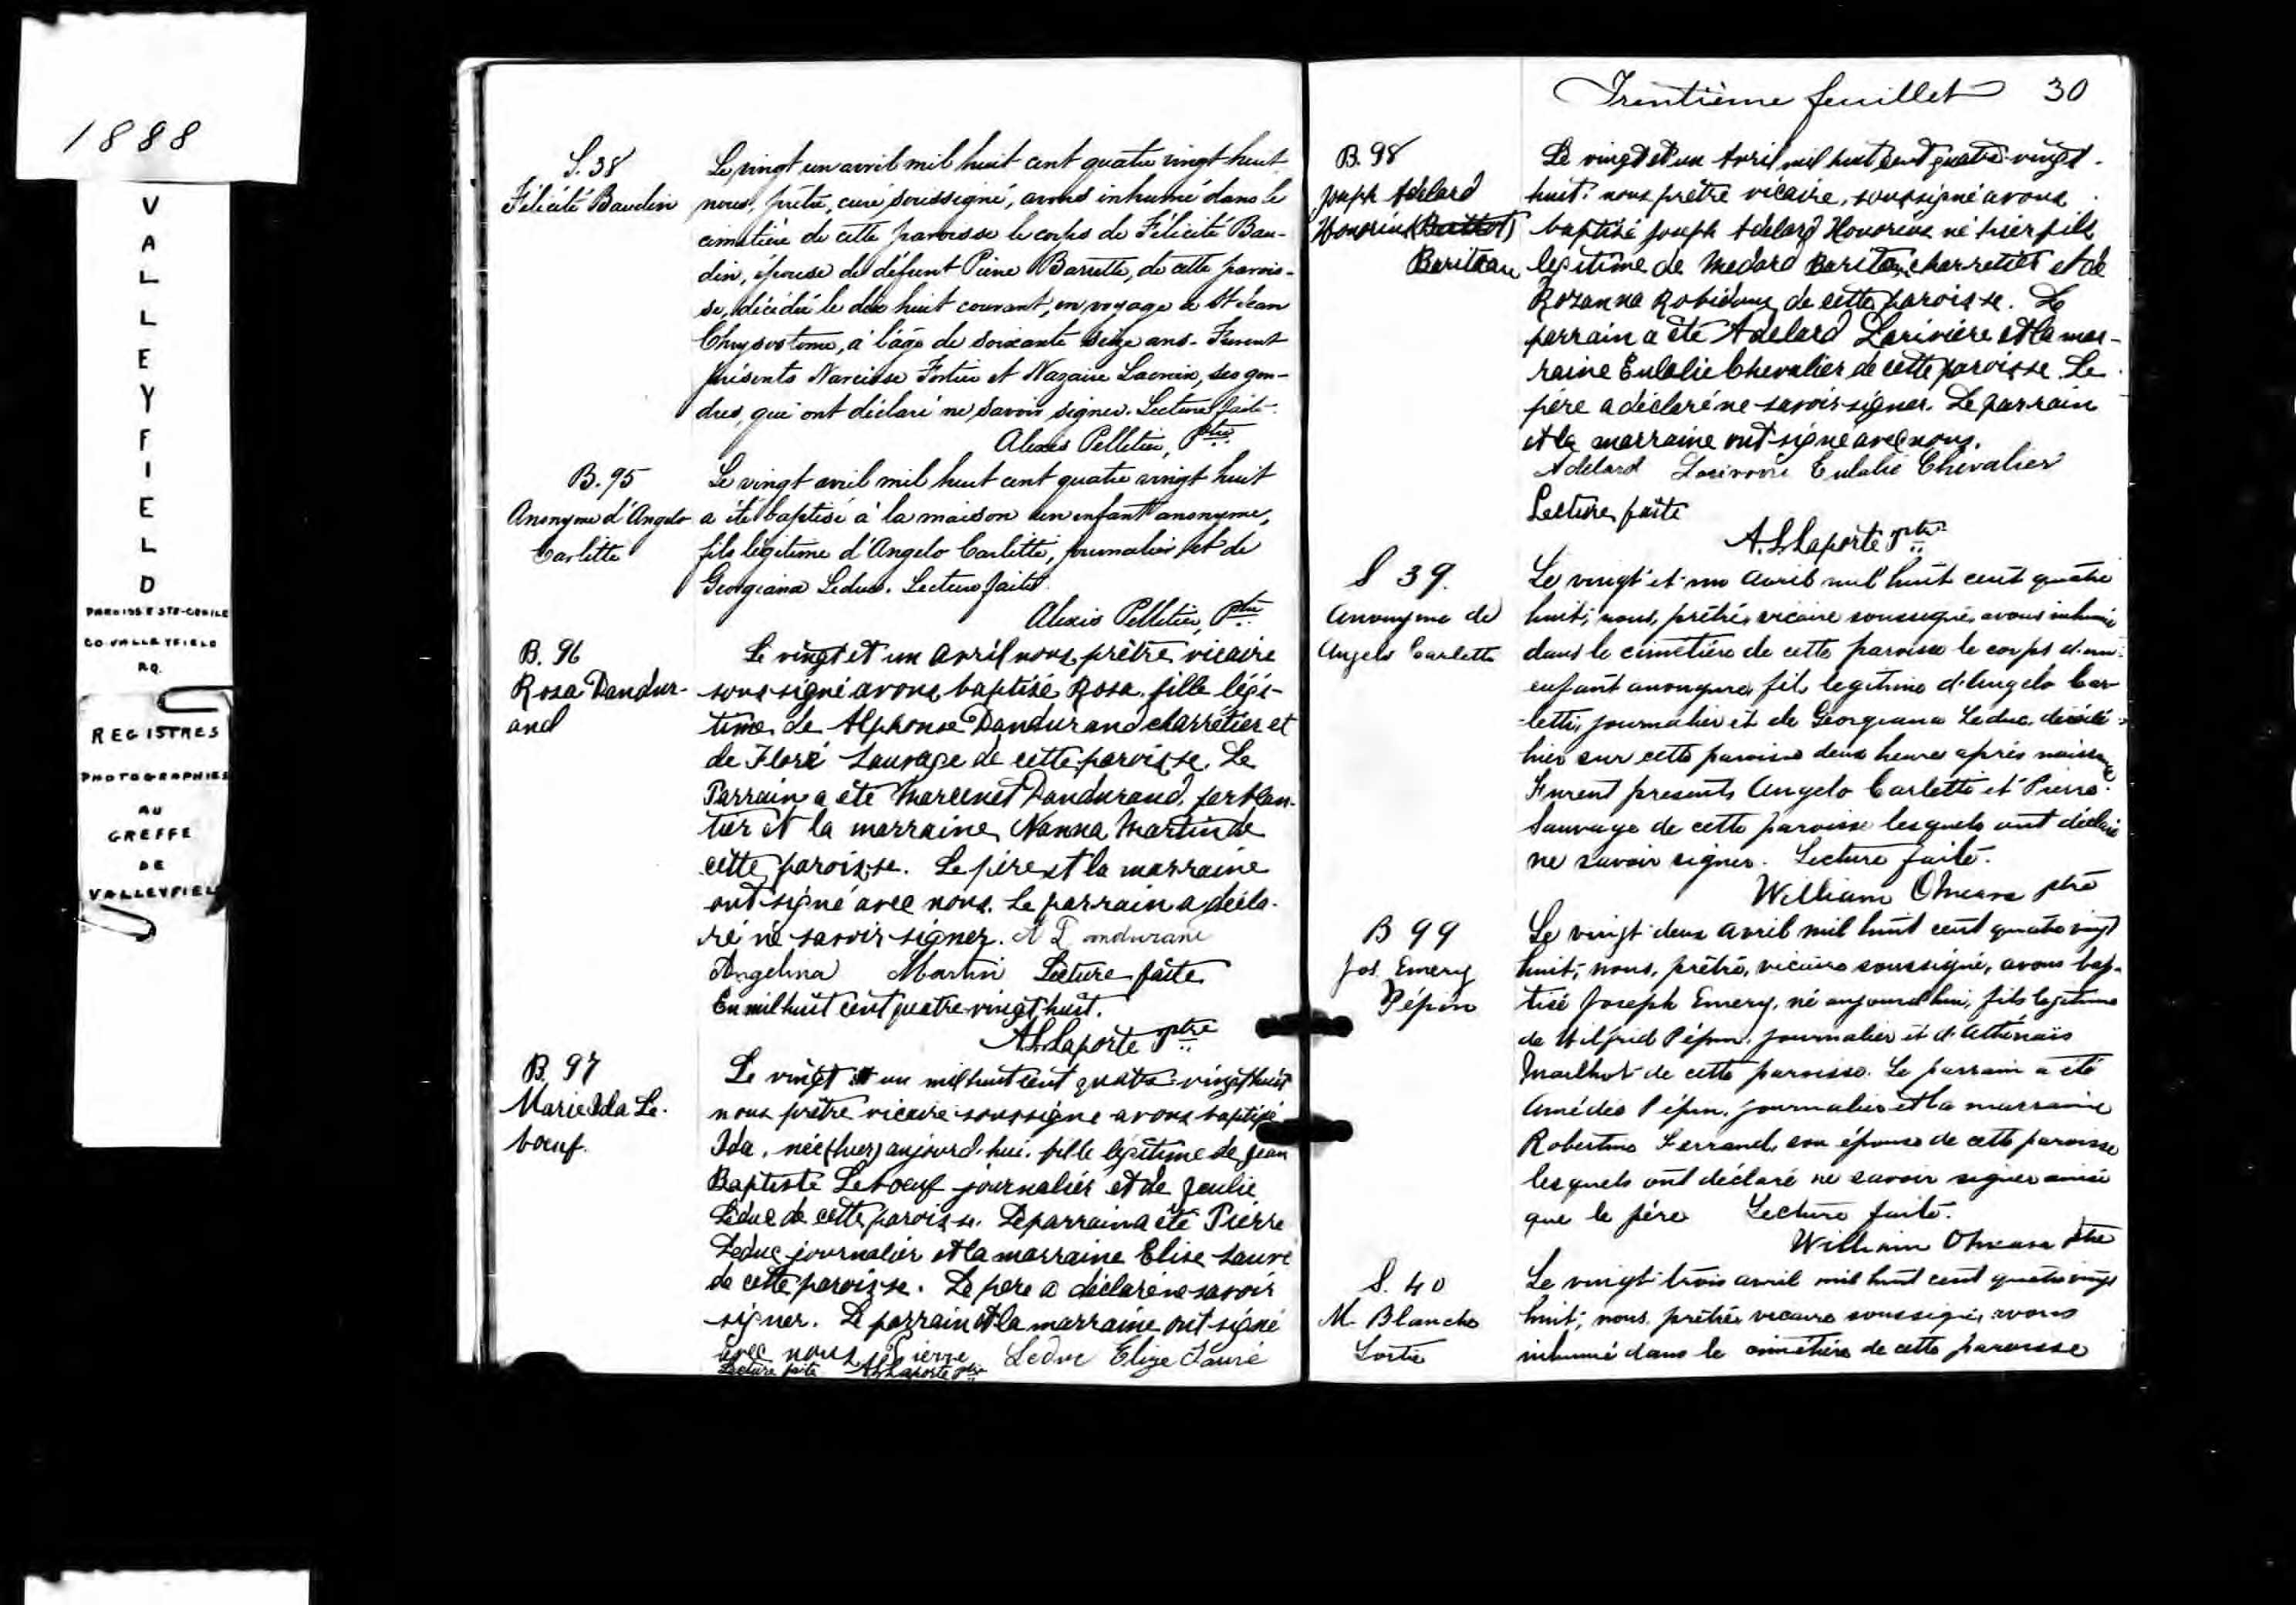 1888
VALLEYFIELD
PAROISSE STE-CECILE
CO. VALLEYFIELD
P.Q.
REGISTRES
PHOTOGRAPHIES
AU
GREFFE
DE
VALLEYFIELD
S. 38
Félicité Baudin
Le vingt un avril mil huit cent quatre vingt huit
nous, prêtre, curé, soussigné, avons inhumé dans le
cimetière de cette paroisse le corps de Félicité Bau-
din, épouse de défunt Pierre Barrette, de cette parois-
se, décédée le dix huit courant, en voyage à St Jean
Chrysostome, à l'âge de soixante seize ans. Furent
présents Narcisse Fortier et Nazaire Lacroix, ses gen-
dres, qui ont déclaré ne savoir signer. Lecture faite.
Alexis Pelletier, Ptre
B. 95
Anonyme d'Angelo
Carlette
Le vingt avril mil huit cent quatre vingt huit
a été baptisé à la maison un enfant anonyme,
fils légitime d'Angelo Carletti, journalier, et de
Georgiana Leduc. Lecture faite.
Alexis Pelletier, Ptre
B. 96
Rosa Dandur-
and
Le vingt et un Avril nous prêtre vicaire
soussigné avons baptisé Rosa. fille légi-
time de Alphonse Dandurand charretier et
de Flore Sauvage de cette paroisse. Le
Parrain a été Dandurand. ferblan-
tier et la marraine Nanna Martin de
cette paroisse. Le père et la marraine
ont signé avec nous. Le parrain a décla-
ré ne savoir signer. A Dandurand
Angelina Martin Lecture faite
En mil huit cent quatre-vingt huit.
A.L. Laporte Ptre
B. 97
Marie Ida Le-
boeuf.
Le vingt et un mil huit cent quatre-vingt huit
nous prêtre vicaire soussigné avons baptisé
Ida, née (hier) aujourd'hui. fille légitime de Jean
Baptiste Leboeuf journalier et de Julie
Leduc de cette paroisse. Le parrain a été Pierre
Leduc journalier et la marraine Elise Sauvé
de cette paroisse. Le père a déclaré ne savoir
signer. Le parrain et la marraine ont signé
avec nous. Pierre Leduc Elize Sauvé
Lecture faite A.L. Laporte Ptre
Trentième feuillet 30
B. 98
Joseph Adelard
Honorius (Barittot)
Bariteau
Le vingt et un Avril mil huit cent quatre-vingt-
huit. nous prêtre vicaire, soussigné avons
baptisé Joseph Adelard Honorius né hier fils
legitime de Medard Bariteau charretier et de
Rozanna Robidoux de cette paroisse. Le
parrain a été Adelard Lariviere et la mar-
raine Eulalie Chevalier de cette paroisse. Le
père a déclaré ne savoir signer. Le parrain
et la marraine ont signé avec nous.
Adelard Larivière Eulalie Chevalier
Lecture faite
A.L. Laporte Ptre
S 39.
Anonyme de
Angelo Carletto
Le vingt et un Avril mil huit cent quatre
huit; nous, prêtre, vicaire soussigné, avons inhumé
dans le cimetière de cette paroisse le corps d'un
enfant anonyme, fils legitime d'Angelo Car-
letti, journalier et de Georgiana Leduc, décédé
hier sur cette paroisse deux heures après naissance
Furent presents Angelo Carletti et Pierre
Sauvage de cette paroisse lesquels ont déclaré
ne savoir signer. Lecture faite.
William Omeara ptre
B 99
Jos. Emery
Pépin
Le vingt-deux avril mil huit cent quatre vingt
huit; nous, prêtre, vicaire soussigné, avons bap-
tisé Joseph Emery, né aujourd'hui, fils legitime
de Wilfrid Pépin, journalier et d'Athénaïs
Mailhot de cette paroisse. Le parrain a été
Amédée Pépin, journalier et la marraine
Robertine Ferrand, son épouse de cette paroisse
lesquels ont déclaré ne savoir signer ainsi
que le père Lecture faite.
William Omeara ptre
S. 40
M. Blanche
Lortie
Le vingt-trois avril mil huit cent quatre vingt
huit; nous, prêtre, vicaire soussigné, avons
inhumé dans le cimetière de cette paroisse